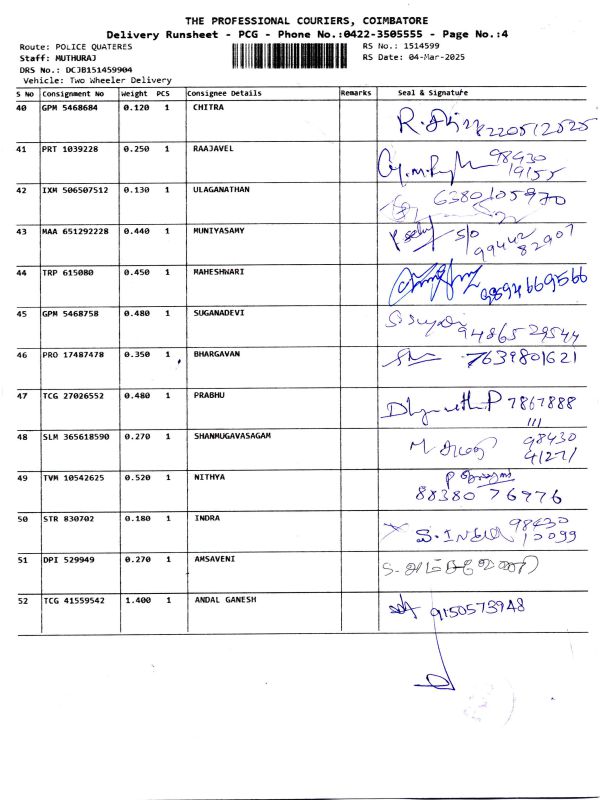 THE PROFESSIONAL COURIERS, COIMBATORE
Delivery Runsheet - PCG - Phone No.:0422-3505555 - Page No.:4
Route: POLICE QUATERES RS No.: 1514599
Staff: MUTHURAJ RS Date: 04-Mar-2025
DRS No.: DCJB151459904
Vehicle: Two Wheeler Delivery
S No Consignment No Weight PCS Consignee Details Remarks Seal & Signature
40 GPM 5468684 0.120 1 CHITRA 8220512525
41 PRT 1039228 0.250 1 RAAJAVEL 98430
19155
42 IXM 506507512 0.130 1 ULAGANATHAN 6380105970
43 MAA 651292228 0.440 1 MUNIYASAMY S/O 99442
82907
44 TRP 615080 0.450 1 MAHESHWARI
45 GPM 5468758 0.480 1 SUGANADEVI 9486529544
46 PRO 17487478 0.350 1 BHARGAVAN 7639801621
47 TCG 27026552 0.480 1 PRABHU 7867888
111
48 SLM 365618590 0.270 1 SHANMUGAVASAGAM 98430
41271
49 TVM 10542625 0.520 1 NITHYA
88380 76976
50 STR 830702 0.180 1 INDRA S. INDRA 98430
10099
51 DPI 529949 0.270 1 AMSAVENI
52 TCG 41559542 1.400 1 ANDAL GANESH 9150573948